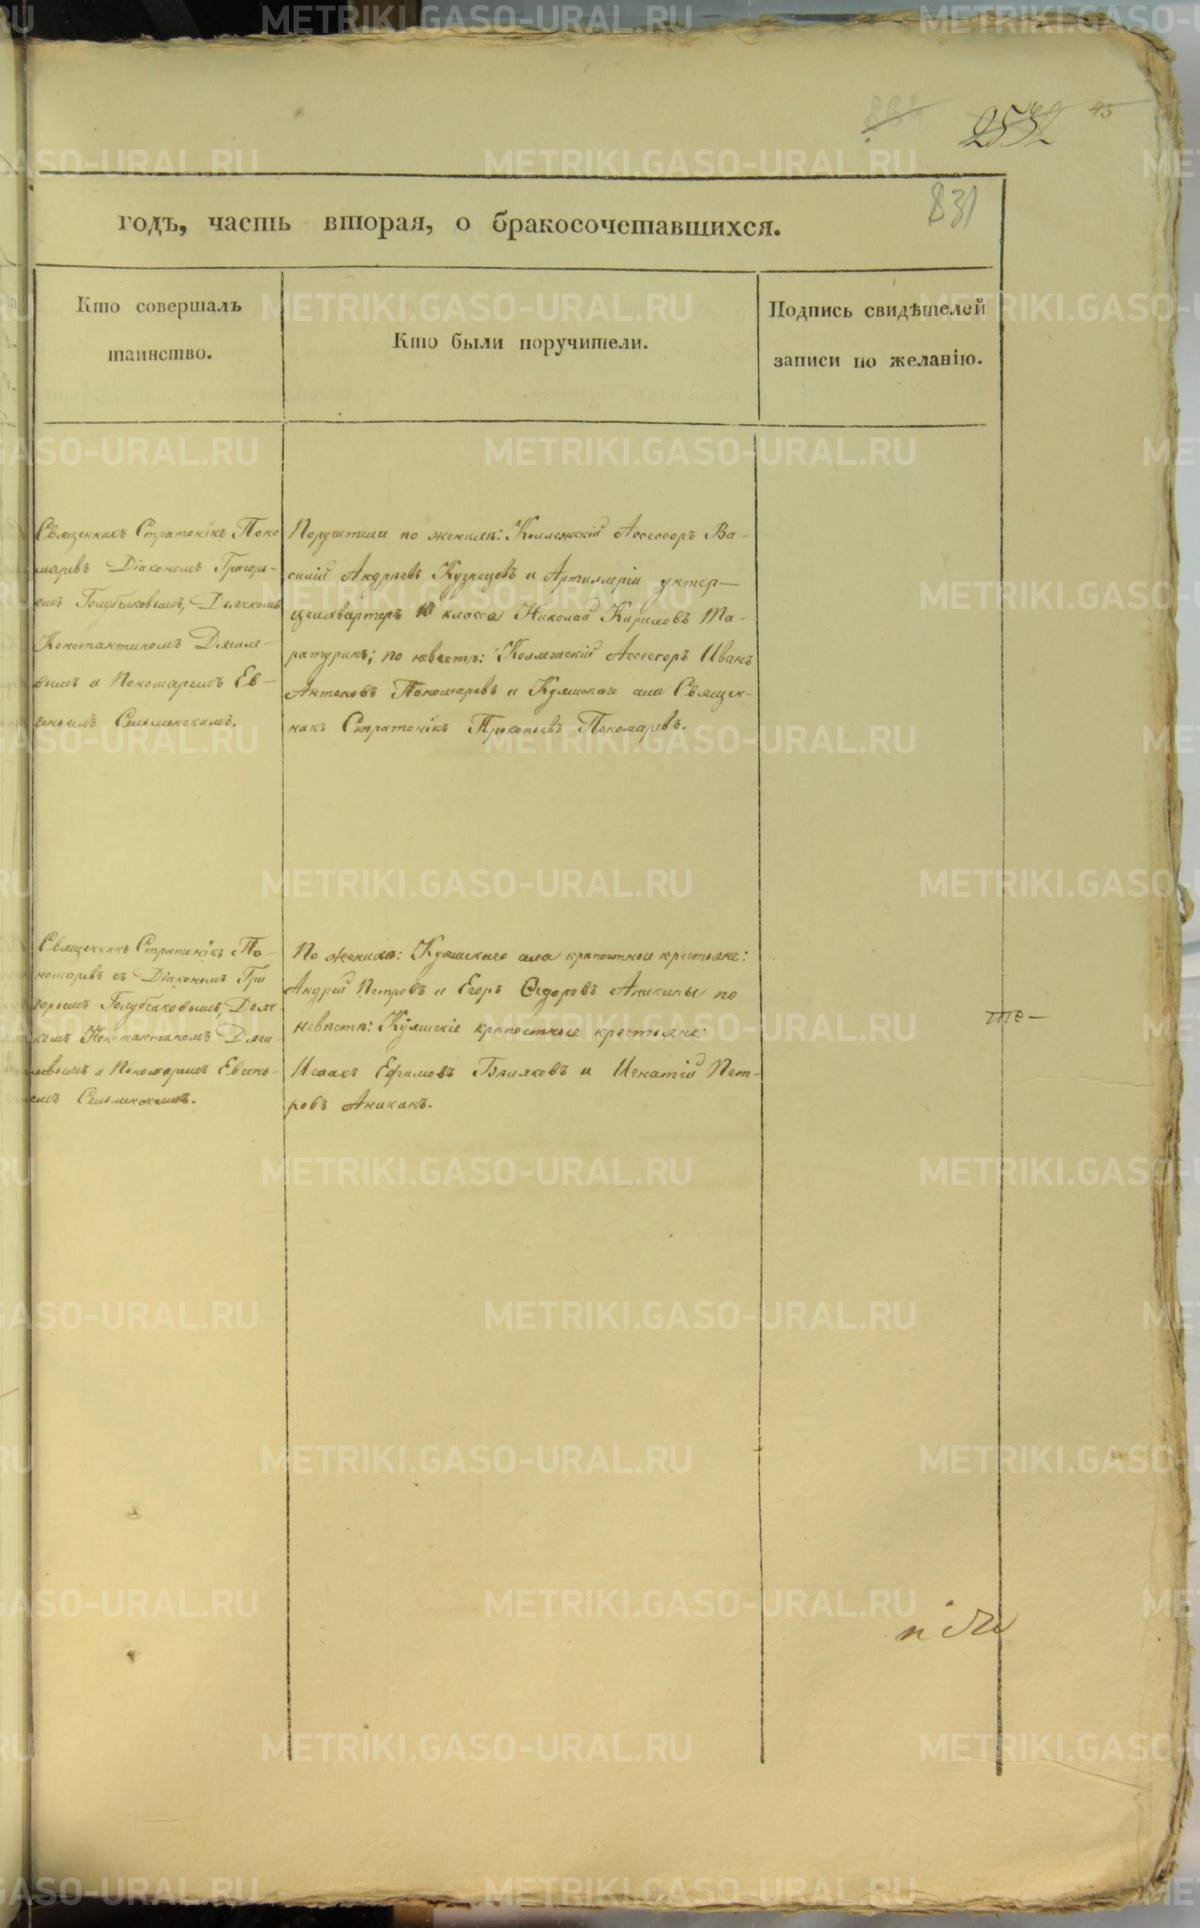 45
2532
831
годъ, часть вторая, о бракосочетавшихся.
Кто совершалъ
таинство.
Кто были поручители.
Подпись свидѣтелей
записи по желанію.
Священникъ Стратонікъ Поно
маревъ Діакономъ Григорь-
емъ Голубчиковымъ, Дьячкомъ
Константиномъ Дягиле-
вымъ и Пономаремъ Ев-
геньемъ
Поручители по женихѣ: Коллежскій Ассесоръ Ва-
силій Андреевъ Кузнецовъ и Артиллеріи унтер-
цейхвартеръ класса Николай Кириловъ Ма-
ратуринъ; по невѣстѣ: Коллежскій Ассесоръ Иванъ
Антоновъ Пономаревъ и Куяшскаго села Священ-
никъ Стратонікъ Прокопьевъ Пономаревъ.
Священникъ Стратонікъ По-
номаревъ съ Діакономъ Гри
горьемъ Голубчиковымъ, Дьяч
комъ Константиномъ Дяги-
левымъ и Пономаремъ Евгень-
емъ
По женихѣ: Куяшскаго села крѣпостные крестьяне:
Андрей Петровъ и Егоръ Сидоровъ Аникины по
невѣстѣ: Куяшскіе крѣпостные крестьяне:
Исаакъ Ефимовъ Бѣляковъ и Игнатій Пет-
ровъ Аникинъ.
те-
METRIKI.GASO-URAL.RU